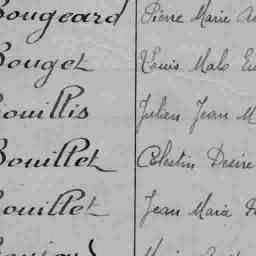 Bougeard Pierre Marie
Bouget Louis Malo
Bouillis Julien Jean M
Bouillet Célestin Désiré
Bouillet Jean Marie